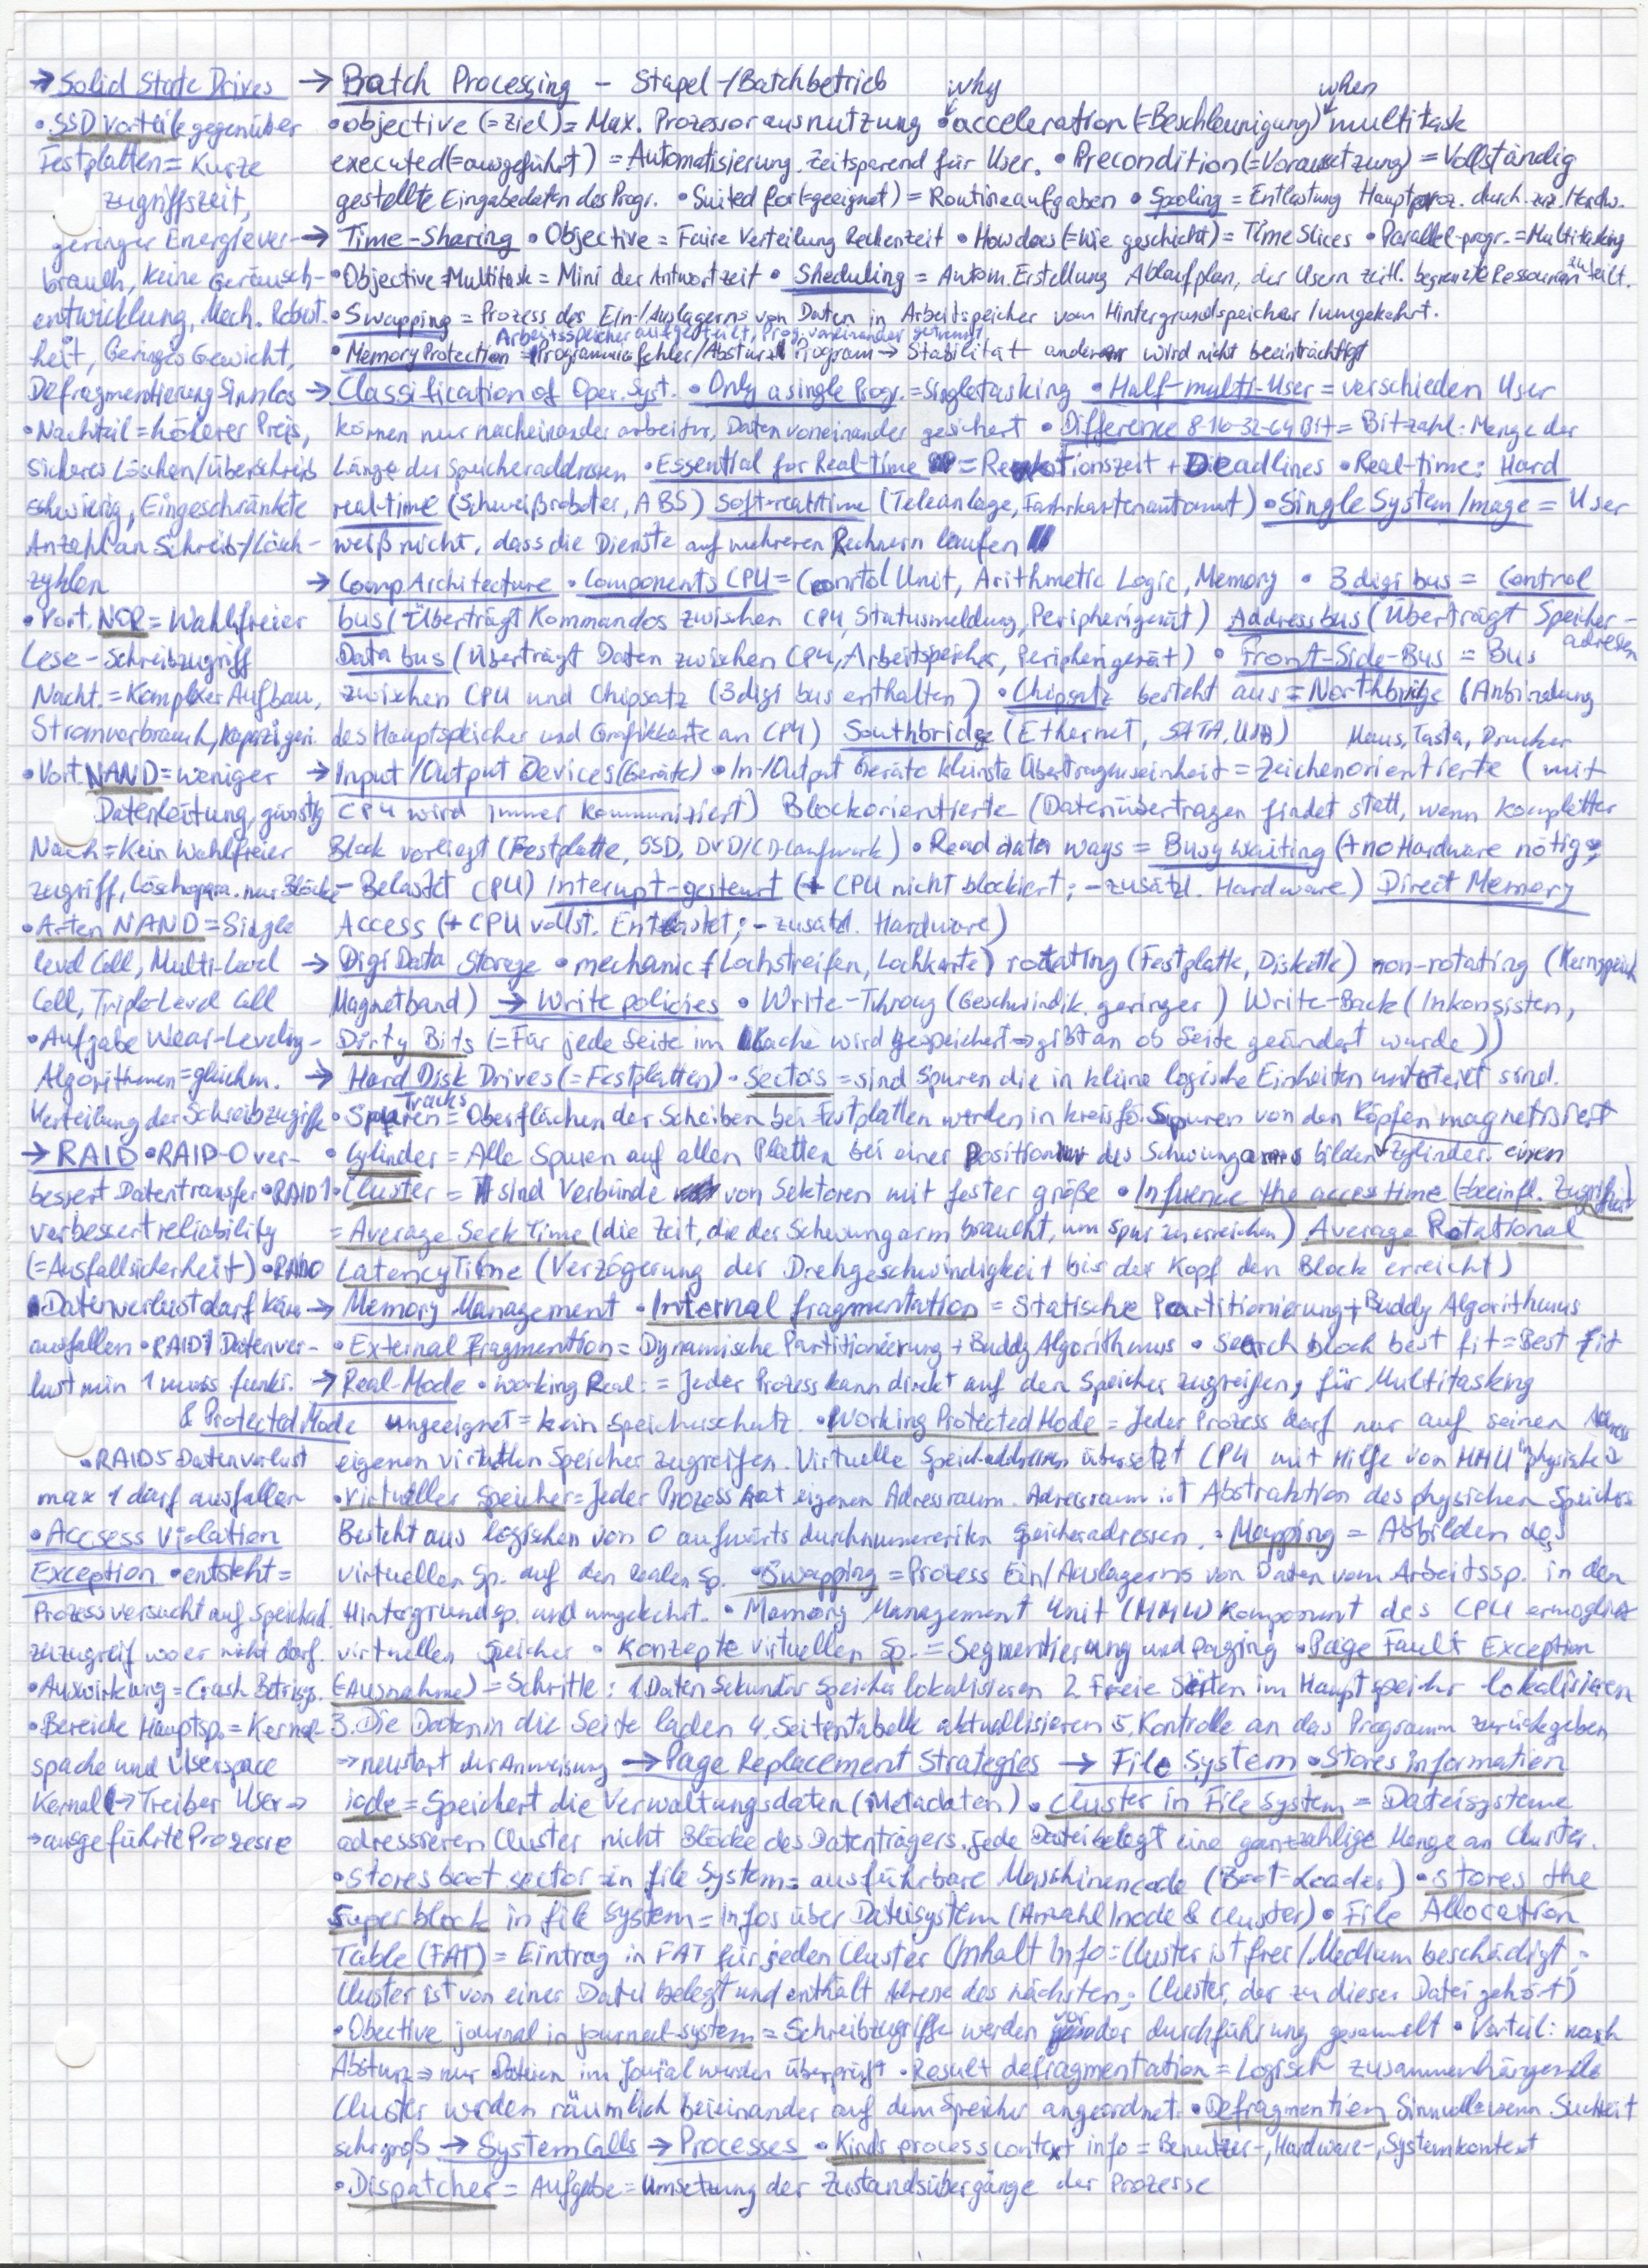 → Solid State Drives
• SSD Vorteile gegenüber
Festplatten = Kurze
Zugriffszeit,
geringer Energiever-
brauch, keine Geräusch-
entwicklung, Mech. Robust-
heit, Geringes Gewicht,
Defragmentierung Sinnlos
• Nachteil = höherer Preis,
sicheres Löschen/überschreib
schwierig, Eingeschränkte
Anzahl an Schreib-/Lösch-
zyklen
• Vort. NOR = Wahlfreier
Lese-Schreibzugriff
Nacht. = Komplexer Aufbau,
Stromverbrauch, Kapazi geri.
• Vort. NAND = weniger
Datenleitung, günstig
Nach = Kein Wahlfreier
zugriff, Löschopera. nur Blöcke
• Arten NAND = Single
level Cell, Multi-Level
Cell, Triple-Level Cell
• Aufgabe Wear-Leveling-
Algorithmen = gleichm.
Verteilung der Schreibzugriffe
→ RAID • RAID-0 ver-
bessert Datentransfer • RAID 1
verbessert reliability
(= Ausfallsicherheit) • RAID0
Datenverlust darf kein
ausfallen • RAID1 Datenver-
lust min 1 muss funkt.
• RAID5 Datenverlust
max 1 darf ausfallen
• Accsess Violation
Exception • entsteht =
Prozess versucht auf Speichad.
zuzugreif wo er nicht darf.
• Auswirkung = Crash Betrieg.
• Bereiche Hauptsp. = Kernel-
spache und Userspace
Kernel → Treiber User →
→ ausgeführte Prozesse
→ Batch Processing - Stapel-/Batchbetrieb why when
• objective (= Ziel) = Max. Prozessorausnutzung • acceleration (= Beschleunigung) multitask
executed (= ausgeführt) = Automatisierung. Zeitsparend für User. • Precondition (= Voraussetzung) = Vollständig
gestellte Eingabedaten des Progr. • Suited for (= geeignet) = Routineaufgaben • Spooling = Entlastung Hauptproz. durch zuz. Hardw.
→ Time-Sharing • Objective = Faire Verteilung Rechenzeit • How does (= Wie geschieht) = Time Slices • Parallel-progr. = Multitasking
• Objective Multitask = Mini der Antwortzeit • Sheduling = Autom. Erstellung Ablaufplan, der Usern zeitl. begrenzte Ressourcen zuteilt.
• Swapping = Prozess des Ein-/Auslagerns von Daten in Arbeitspeicher vom Hintergrundspeicher / umgekehrt.
Arbeitsspeicher aufgeteilt, Prog. voneinander getrennt
• Memory Protection = Programmfehler/Absturz Program → Stabilität anderer wird nicht beeinträchtigt
→ Classification of Oper. Syst. • Only a single Progr. = Singletasking • Half-multi-User = verschieden User
können nur nacheinander arbeiten, Daten voneinander gesichert • Difference 8-16-32-64 Bit = Bitzahl: Menge der
Länge der Speicheraddressen • Essential for Real-time = Reaktionszeit + Deadlines • Real-time: Hard
real-time (Schweißroboter, ABS) Soft-realtime (Teleanlage, Fahrkartenautomat) • Single System Image = User
weiß nicht, dass die Dienste auf mehreren Rechnern laufen
→ Comp Architecture • Components CPU = Control Unit, Arithmetic Logic, Memory • 3 digi bus = Control
bus (Überträgt Kommandos zwischen CPU, Statusmeldung, Peripheriegerät) Address bus (Überträgt Speicher-
adressen
Data bus (Überträgt Daten zwischen CPU, Arbeitspeicher, Peripheriegerät) • Front-Side-Bus = Bus
zwischen CPU und Chipsatz (3 digi bus enthalten) • Chipsatz besteht aus = Northbridge (Anbindung
des Hauptspeicher und Grafikkarte an CPU) Southbridge (Ethernet, SATA, USB) Maus, Tasta, Drucker
→ Input/Output Devices (Geräte) • In-/Output Geräte kleinste Übertragungseinheit = Zeichenorientierte (mit
CPU wird immer kommuniziert) Blockorientierte (Datenübertragen findet statt, wenn kompletter
Block vorliegt (Festplatte, SSD, DVD/CD-Laufwerk) • Read data ways = Busy Waiting (+ no Hardware nötig;
- Belastet CPU) Interupt-gesteurt (+ CPU nicht blockiert; - zusätzl. Hardware) Direct Memory
Access (+ CPU vollst. Entlastet; - zusätzl. Hardware)
→ Digi Data Storage • mechanic (Lochstreifen, Lochkarte) rotating (Festplatte, Diskette) non-rotating (Kernspeich
Magnetband) → Write policies • Write-Throug (Geschwindik. geringer) Write-Back (Inkonsisten,
Dirty Bits (= Für jede Seite im Cache wird gespeichert → gibt an ob Seite geändert wurde))
→ Hard Disk Drives (= Festplatten) • Sectors = sind Spuren die in kleine logische Einheiten unterteilt sind.
Tracks
• Spuren = Oberflächen der Scheiben bei Festplatten werden in kreisfö. Spuren von den Köpfen magnetisiert
• Cylinder = Alle Spuren auf allen Platten bei einer Position des Schwungarms bilden Zylinder. einen
• Cluster = sind Verbünde von Sektoren mit fester größe • Influence the access time (= beeinfl. Zugriffszeit)
= Average Seek Time (die Zeit, die der Schwungarm braucht, um Spur zu erreichen) Average Rotational
Latency Time (Verzögerung der Drehgeschwindigkeit bis der Kopf den Block erreicht)
→ Memory Management • Internal fragmentation = Statische Partitionierung + Buddy Algorithmus
• External Fragmention = Dynamische Partitionierung + Buddy Algorithmus • Search block best fit = Best fit
→ Real-Mode • working Real: = Jeder Prozess kann direkt auf den Speicher zugreifen, für Multitasking
& Protected Mode ungeeignet = kein Speicherschutz. • Working Protected Mode = Jeder Prozess darf nur auf seinen
eigenen virtuellen Speicher zugreifen. Virtuelle Speich.addressen übersetzt CPU mit Hilfe von MMU in physische
• Virtueller Speicher = Jeder Prozess hat eigenen Adressraum. Adressraum ist Abstraktion des physichen Speichers
Besteht aus logischen von 0 aufwärts durchnummerierten Speicheradressen. • Mapping = Abbilden des
virtuellen Sp. auf den realen Sp. • Swapping = Prozess Ein/Auslagerns von Daten vom Arbeitssp. in den
Hintergrundsp. und umgekehrt. • Memory Management Unit (MMU) Komponent des CPU ermöglicht
virtuellen Speicher • Konzepte virtuellen Sp. = Segmentierung und paging • Page Fault Exception
(Ausnahme) = Schritte: 1. Daten Sekundär Speicher lokalisieren 2. Freie Seiten im Hauptspeicher lokalisieren
3. Die Daten in die Seite laden 4. Seitentabelle aktuallisieren 5. Kontrolle an das Programm zurückgeben
⇒ neustart der Anweisung → Page Replacement Strategies → File System • Stores information
iode = Speichert die Verwaltungsdaten (Metadaten) • Cluster in File System = Dateisysteme
adresssieren Cluster nicht Blöcke des Datenträgers. Jede Datei belegt eine ganzzahlige Menge an Cluster.
• Stores boot sector in file System = ausführbare Maschinencode (Boot-Loader) • stores the
Super block in file System = Infos über Dateisystem (Anzahl Inode & Cluster) • File Allocation
Table (FAT) = Eintrag in FAT für jeden Cluster (Inhalt Info: Cluster ist frei/Medium beschädigt;
Cluster ist von einer Datei belegt und enthält Adresse des nächsten; Cluster, der zu dieser Datei gehört)
• Obective journal in journal-system = Schreibzugriffe werden vor der durchführung gesammelt • Vorteil: nach
Absturz ⇒ nur Dateien im Jounal werden überprüft • Result defragmentation = Logisch zusammenhängende
Cluster werden räumlich beieinander auf dem Speicher angeordnet. • Defragmentien Sinnvoll wenn Suchzeit
sehr groß → System Calls → Processes • Kinds process context info = Benutzer-, Hardware-, Systemkontext
• Dispatcher = Aufgabe = Umsetzung der Zustandsübergänge der Prozesse